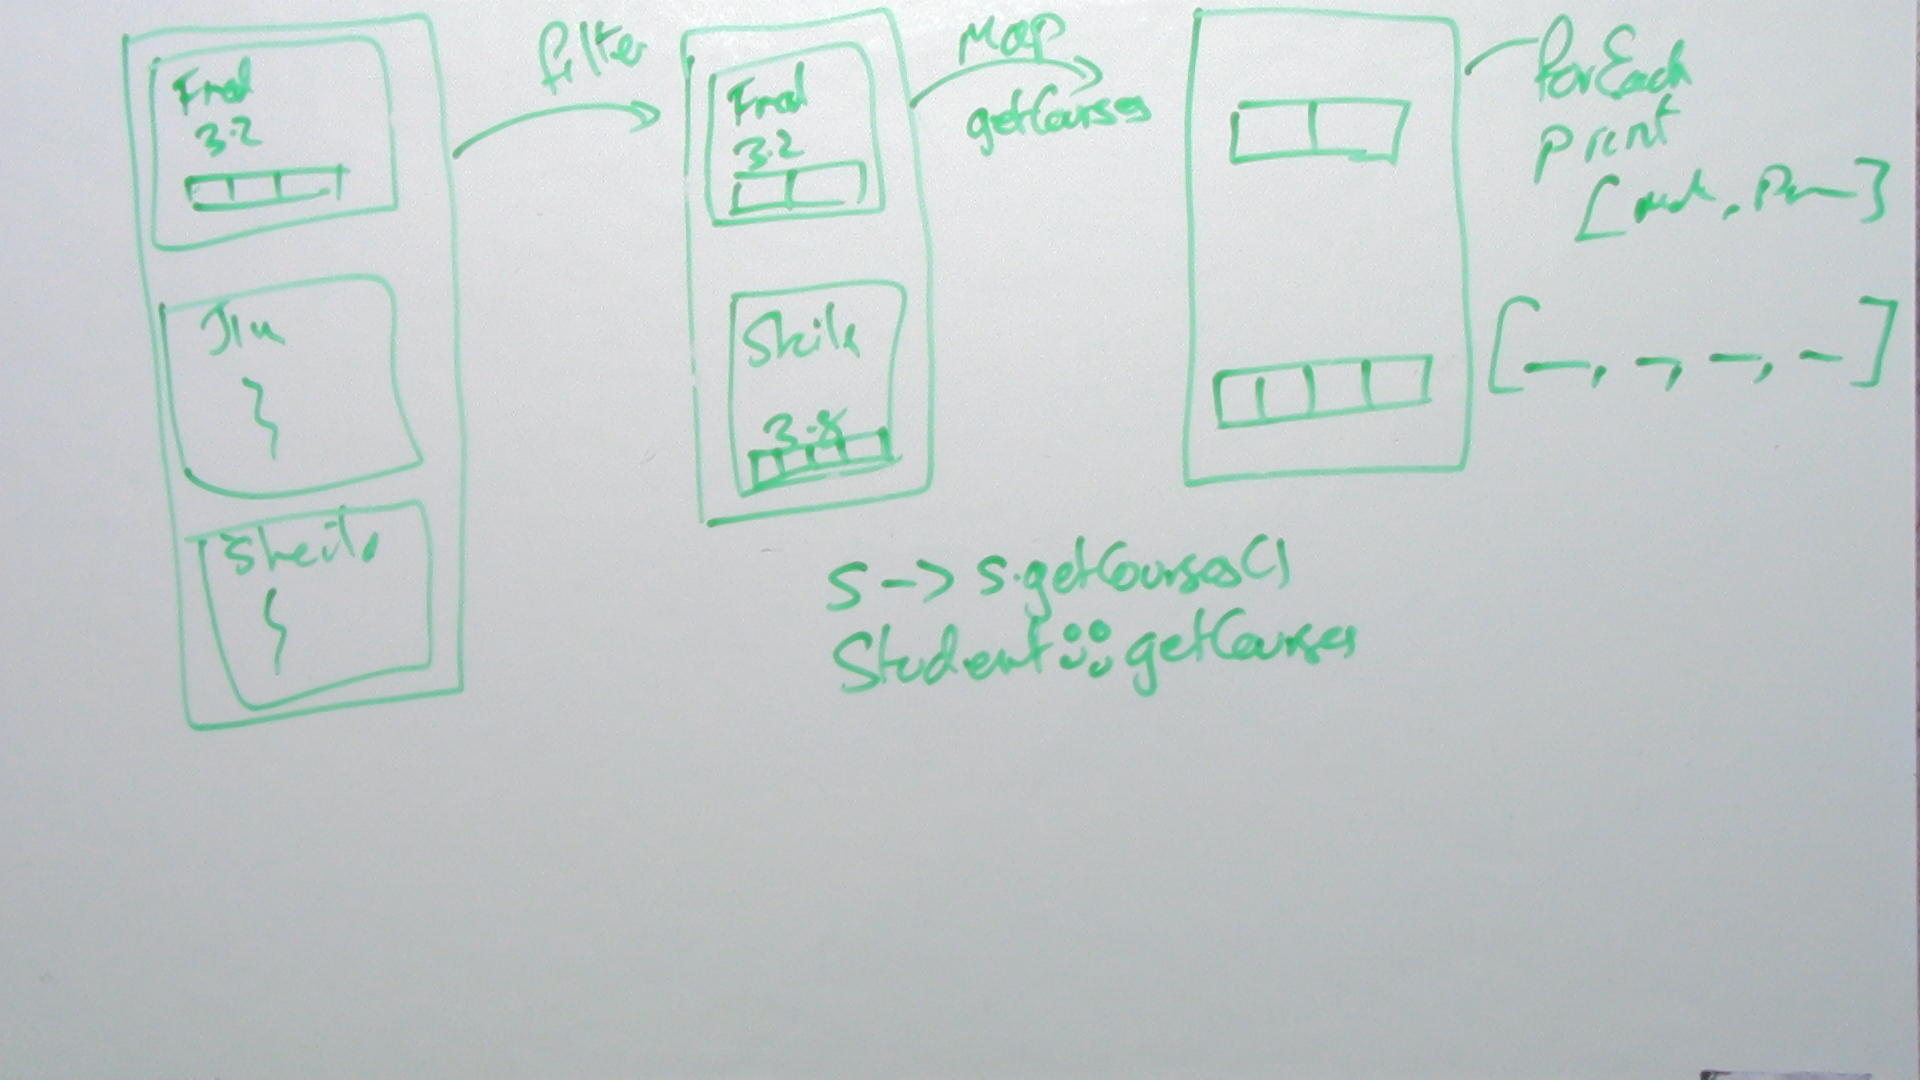 Fred
3.2
Jim
Sheila
filter
Fred
3.2
Sheila
3.8
Map
getCourses
forEach
print
[
,
]
[—, —, —, —]
s -> s.getCourses()
Student::getCourses